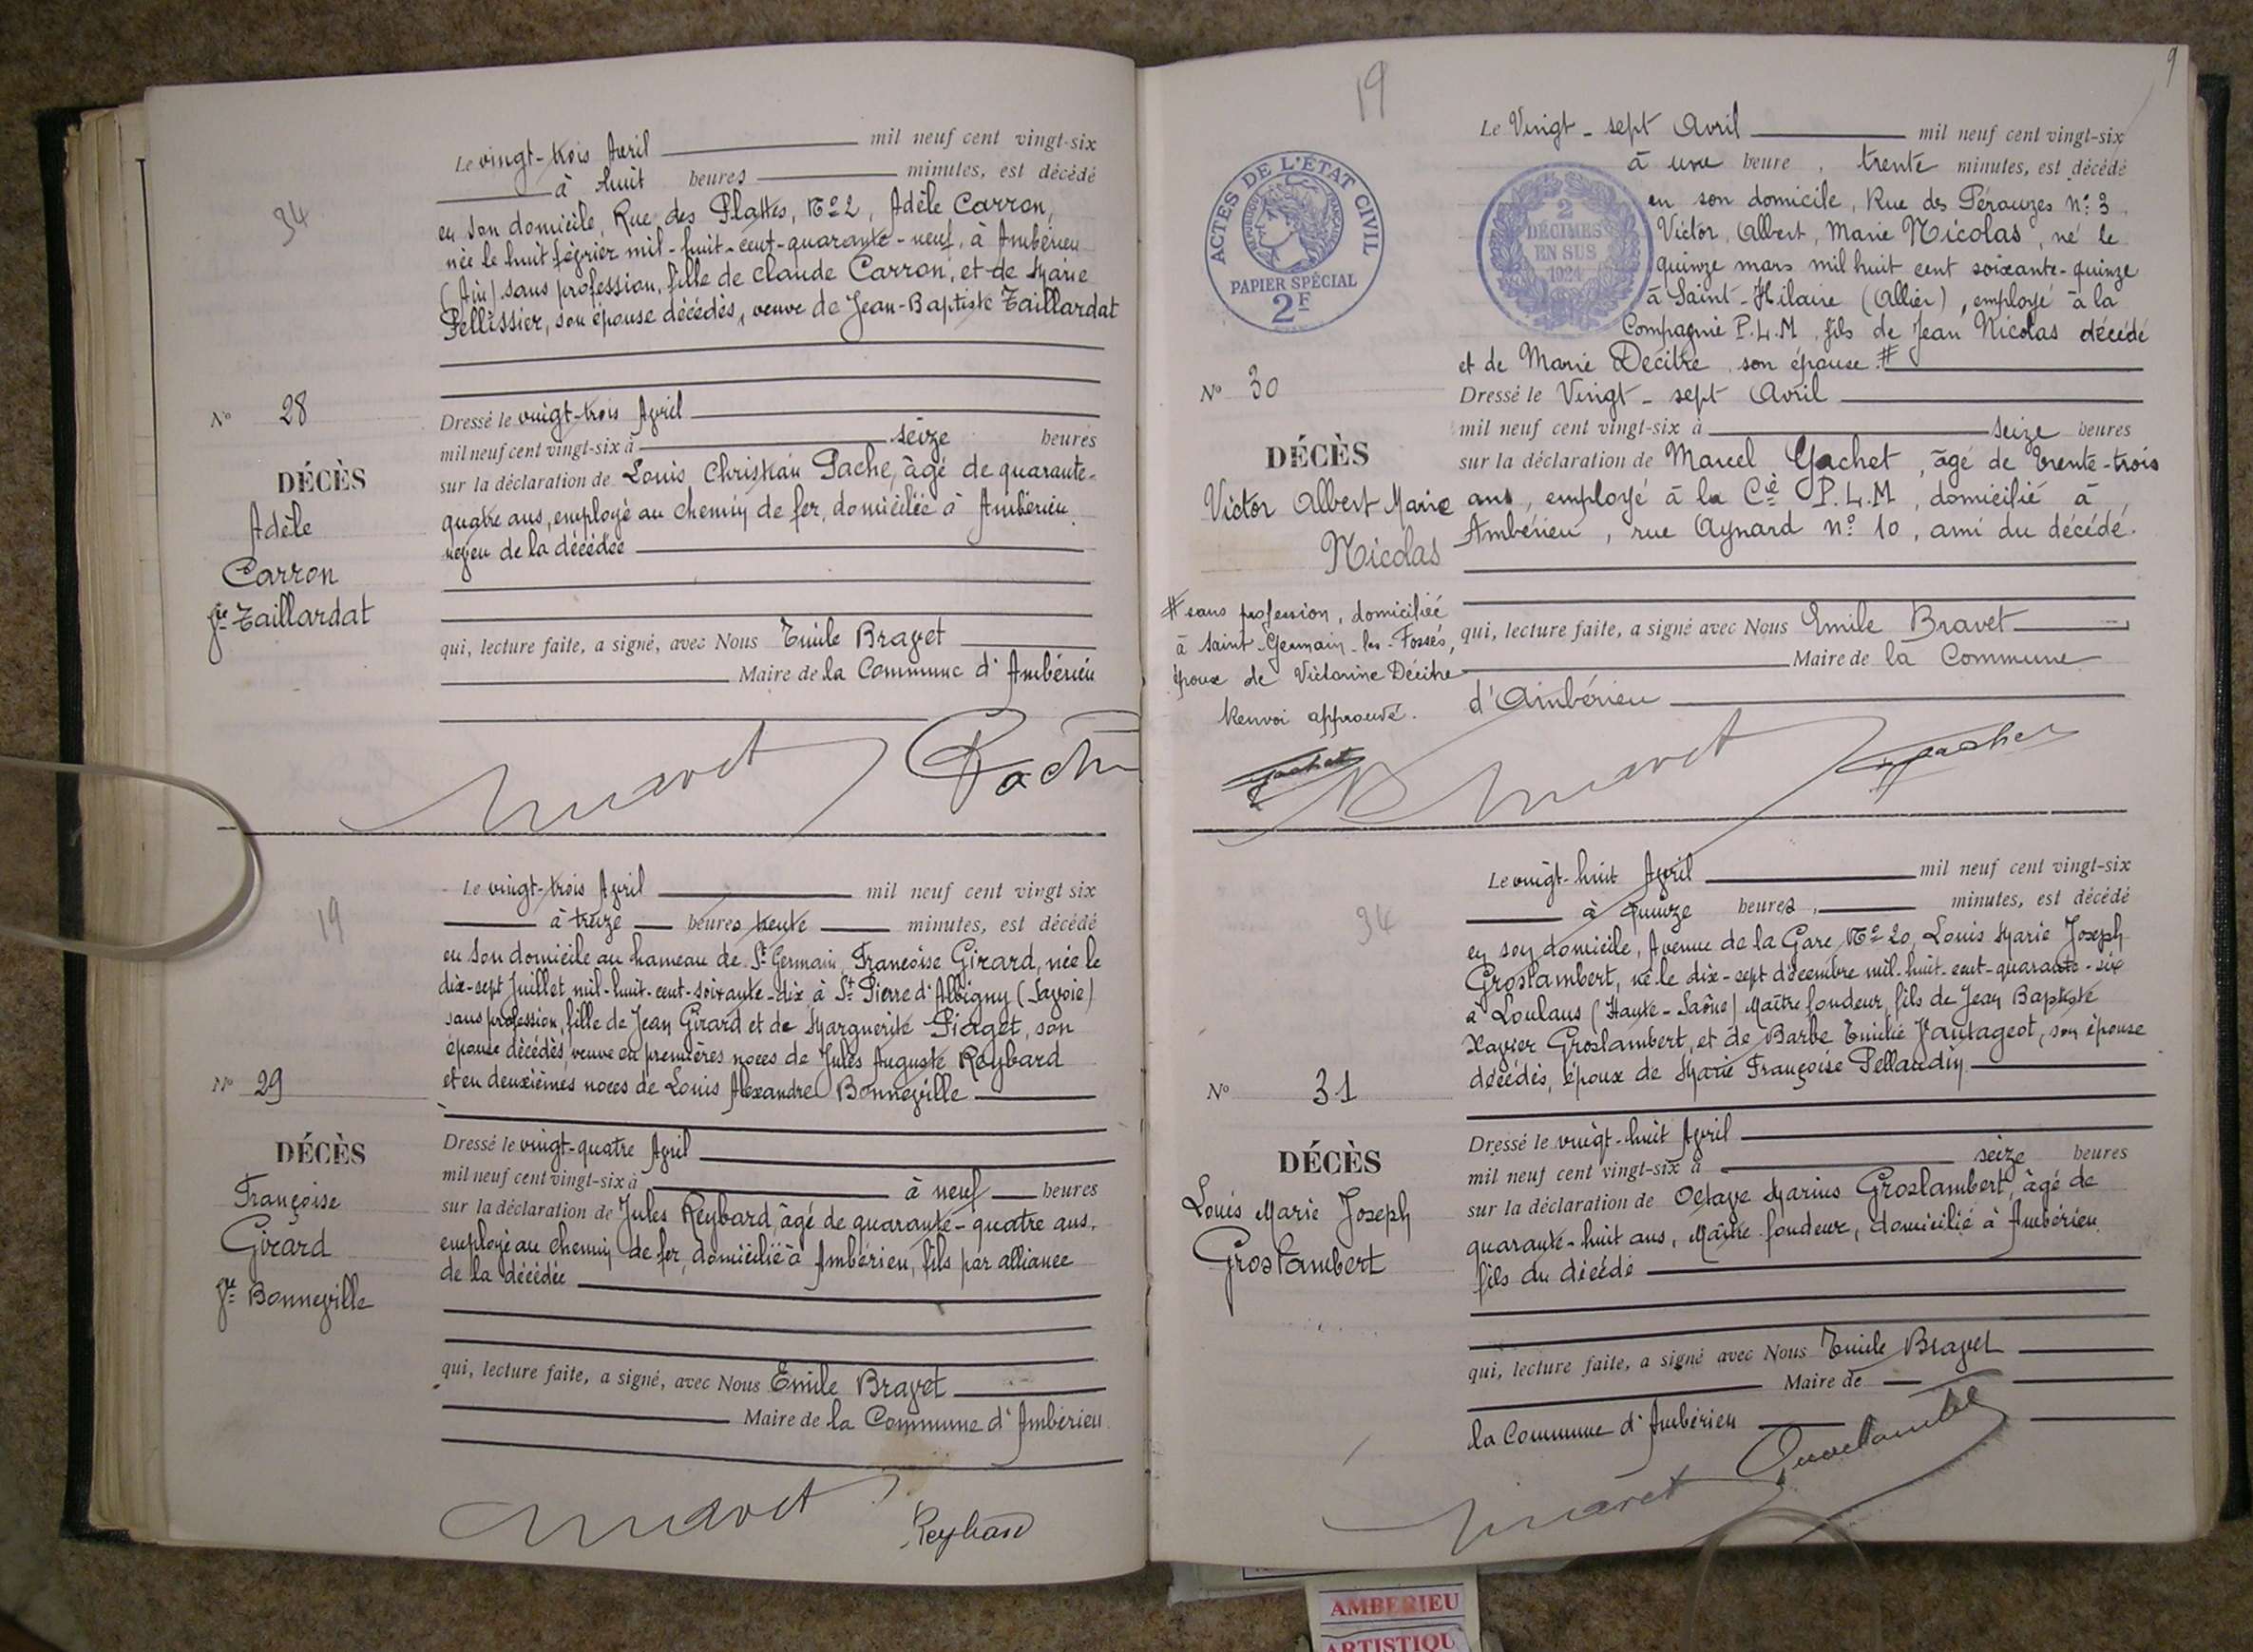 34
Le vingt-trois Avril mil neuf cent vingt-six
à huit heures minutes, est décédé
en son domicile, Rue des Plattes, N° 2, Adèle Carron,
née le huit février mil-huit-cent-quarante-neuf, à Ambérieu
(Ain) sans profession, fille de Claude Carron, et de Marie
Pellissier, son épouse décédés, veuve de Jean-Baptiste Taillardat
N° 28
DÉCÈS
Adèle
Carron
Vve Taillardat
Dressé le vingt-trois Avril
mil neuf cent vingt-six à seize heures
sur la déclaration de Louis Christian Pache, âgé de quarante-
quatre ans, employé au chemin de fer, domiciliée à Ambérieu,
neveu de la décédée
qui, lecture faite, a signé, avec Nous Emile Bravet
Maire de la Commune d'Ambérieu
19
Le vingt-trois Avril mil neuf cent vingt six
à treize heures trente minutes, est décédé
en son domicile au hameau de St Germain, Françoise Girard, née le
dix-sept Juillet mil-huit-cent-soixante-dix à St Pierre d'Albigny (Savoie)
sans profession, fille de Jean Girard et de Marguerite Piaget, son
épouse décédés, veuve en premières noces de Jules Auguste Reybard
et en deuxièmes noces de Louis Alexandre Bonneville
N° 29
DÉCÈS
Françoise
Girard
Vve Bonneville
Dressé le vingt-quatre Avril
mil neuf cent vingt-six à à neuf heures
sur la déclaration de Jules Reybard, âgé de quarante-quatre ans,
employé au chemin de fer, domicilié à Ambérieu, fils par alliance
de la décédée
qui, lecture faite, a signé, avec Nous Emile Bravet
Maire de la Commune d'Ambérieu
Reybard
19
9
ACTES DE L'ÉTAT CIVIL
RÉPUBLIQUE FRANÇAISE
PAPIER SPÉCIAL
2F
2
DÉCIMES
EN SUS
1924
Le Vingt-sept Avril mil neuf cent vingt-six
à une heure, trente minutes, est décédé
en son domicile, Rue des Pérouzes N° 3
Victor, Albert, Marie Nicolas, né le
quinze mars mil huit cent soixante-quinze
à Saint-Hilaire (Allier), employé à la
Compagnie P.L.M, fils de Jean Nicolas décédé
et de Marie Decitre, son épouse. #
N° 30
DÉCÈS
Victor Albert Marie
Nicolas
# sans profession, domiciliée
à Saint-Germain-les-Fossés,
époux de Victorine Décitre
Renvoi approuvé.
Dressé le Vingt-sept Avril
mil neuf cent vingt-six à seize heures
sur la déclaration de Marcel Gachet, âgé de trente-trois
ans, employé à la Cie P.L.M, domicilié à
Ambérieu, rue Aynard N° 10, ami du décédé.
qui, lecture faite, a signé avec Nous Emile Bravet
Maire de la Commune
d'Ambérieu
Gachet
Gachet
34
Le vingt-huit Avril mil neuf cent vingt-six
à quinze heures, minutes, est décédé
en son domicile, Avenue de la Gare, N° 20, Louis Marie Joseph
Groslambert, né le dix-sept décembre mil-huit-cent-quarante-six
à Loulans (Haute-Saône) Maître fondeur, fils de Jean Baptiste
Xavier Groslambert, et de Barbe Emilie Vautageot, son épouse
décédés, époux de Marie Françoise Pellaudin
N° 31
DÉCÈS
Louis Marie Joseph
Groslambert
Dressé le vingt-huit Avril
mil neuf cent vingt-six à seize heures
sur la déclaration de Octave Marius Groslambert, âgé de
quarante-huit ans, Maître fondeur, domicilié à Ambérieu,
fils du décédé
qui, lecture faite, a signé avec Nous Emile Bravet
Maire de
la Commune d'Ambérieu
AMBERIEU
ARTISTIQU